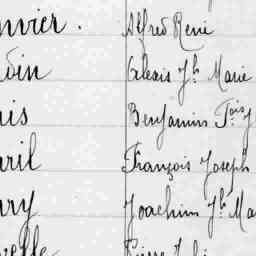 nvier. Alfred René
din Alexis Jh Marie
is Benjamin Fçois J
ril François Joseph
ry Joachim Jh Ma
velle Pierre